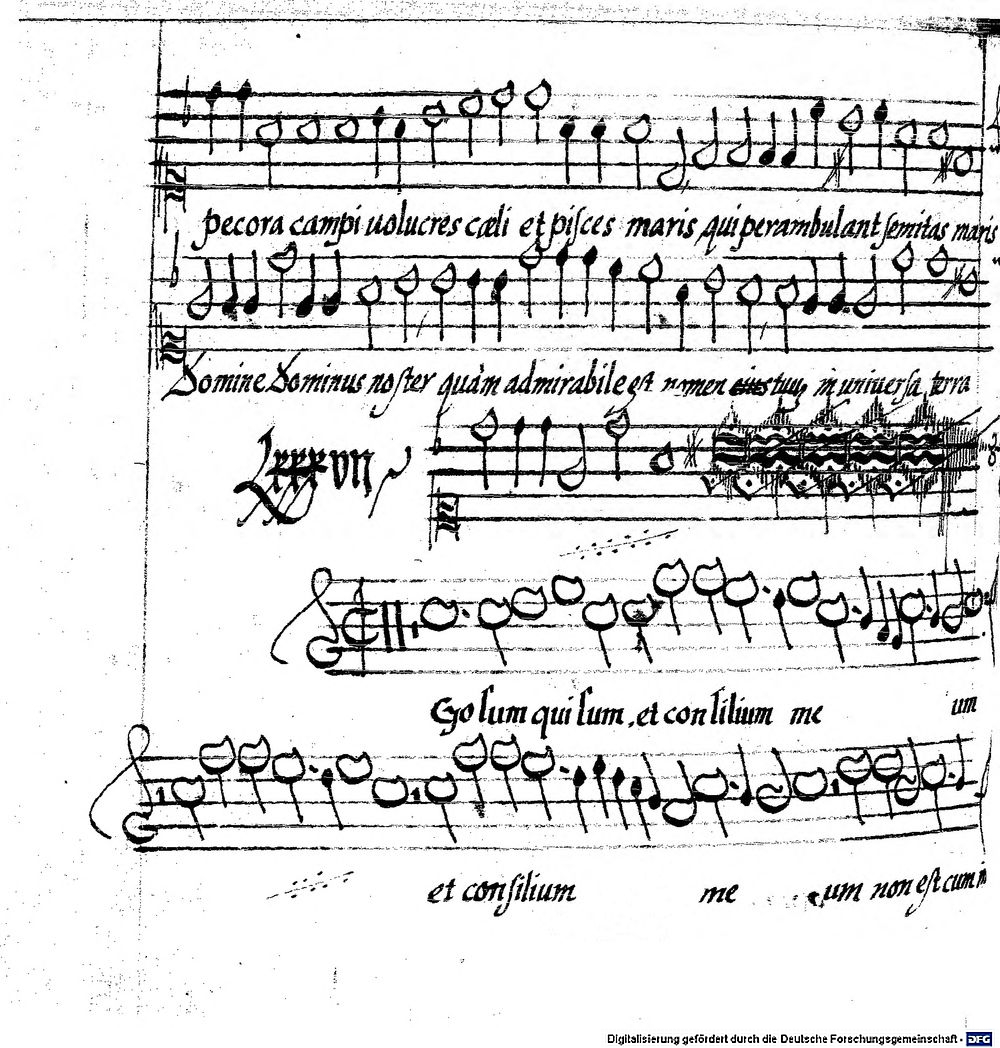 pecora campi uolucres cæli et pisces maris qui perambulant semitas maris
Domine Dominus noster quàm admirabile est nomen tuum in universa terra
Go sum qui sum et consilium me um
et consilium me um non est cum
Digitalisierung gefördert durch die Deutsche Forschungsgemeinschaft - DFG